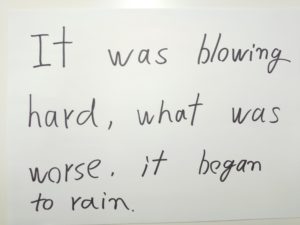 It was blowing
hard, what was
worse. it began
to rain.